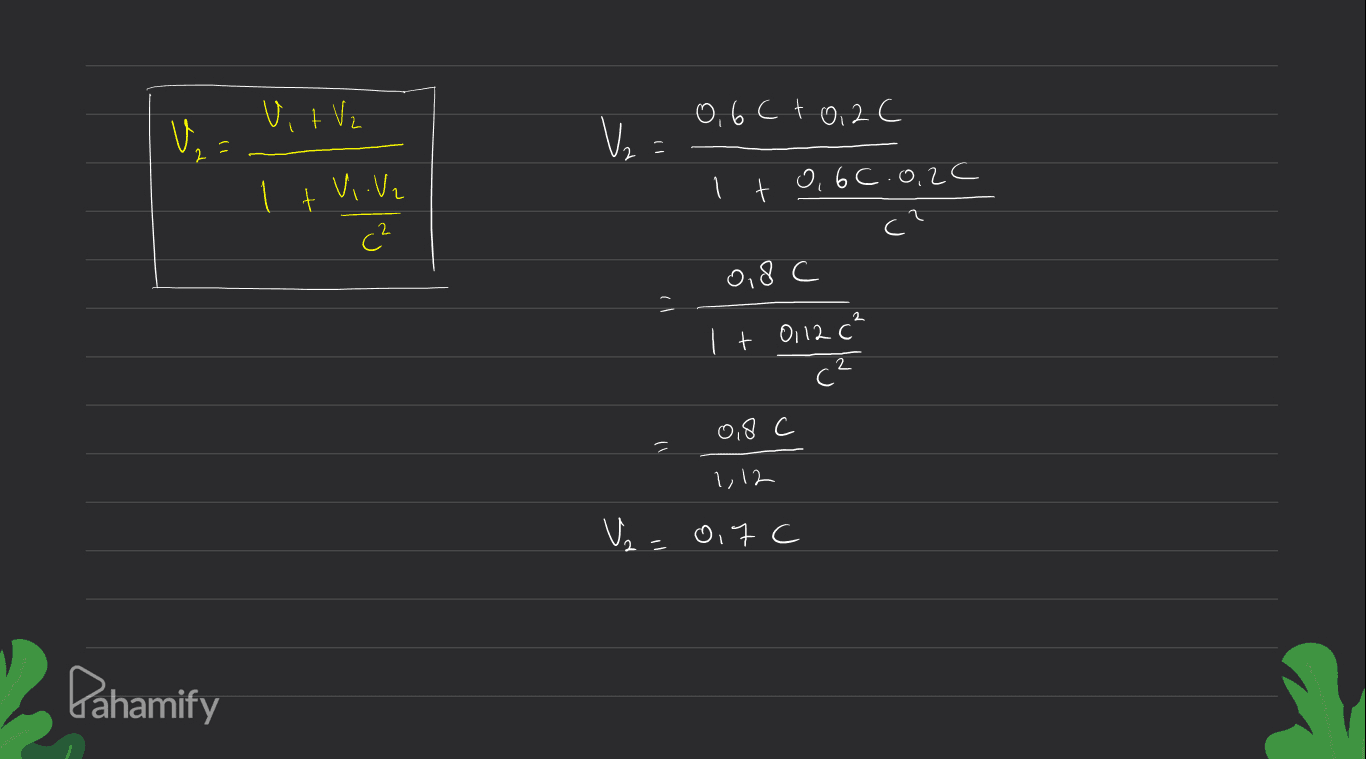 V₂ = (V₁ + V₂) / (1 + V₁.V₂ / c²)
V₂ = (0,6 C + 0,2 C) / (1 + 0,6 C . 0,2 C / c²)
= 0,8 C / (1 + 0,12 C² / c²)
= 0,8 C / 1,12
V₂ = 0,7 C
Pahamify